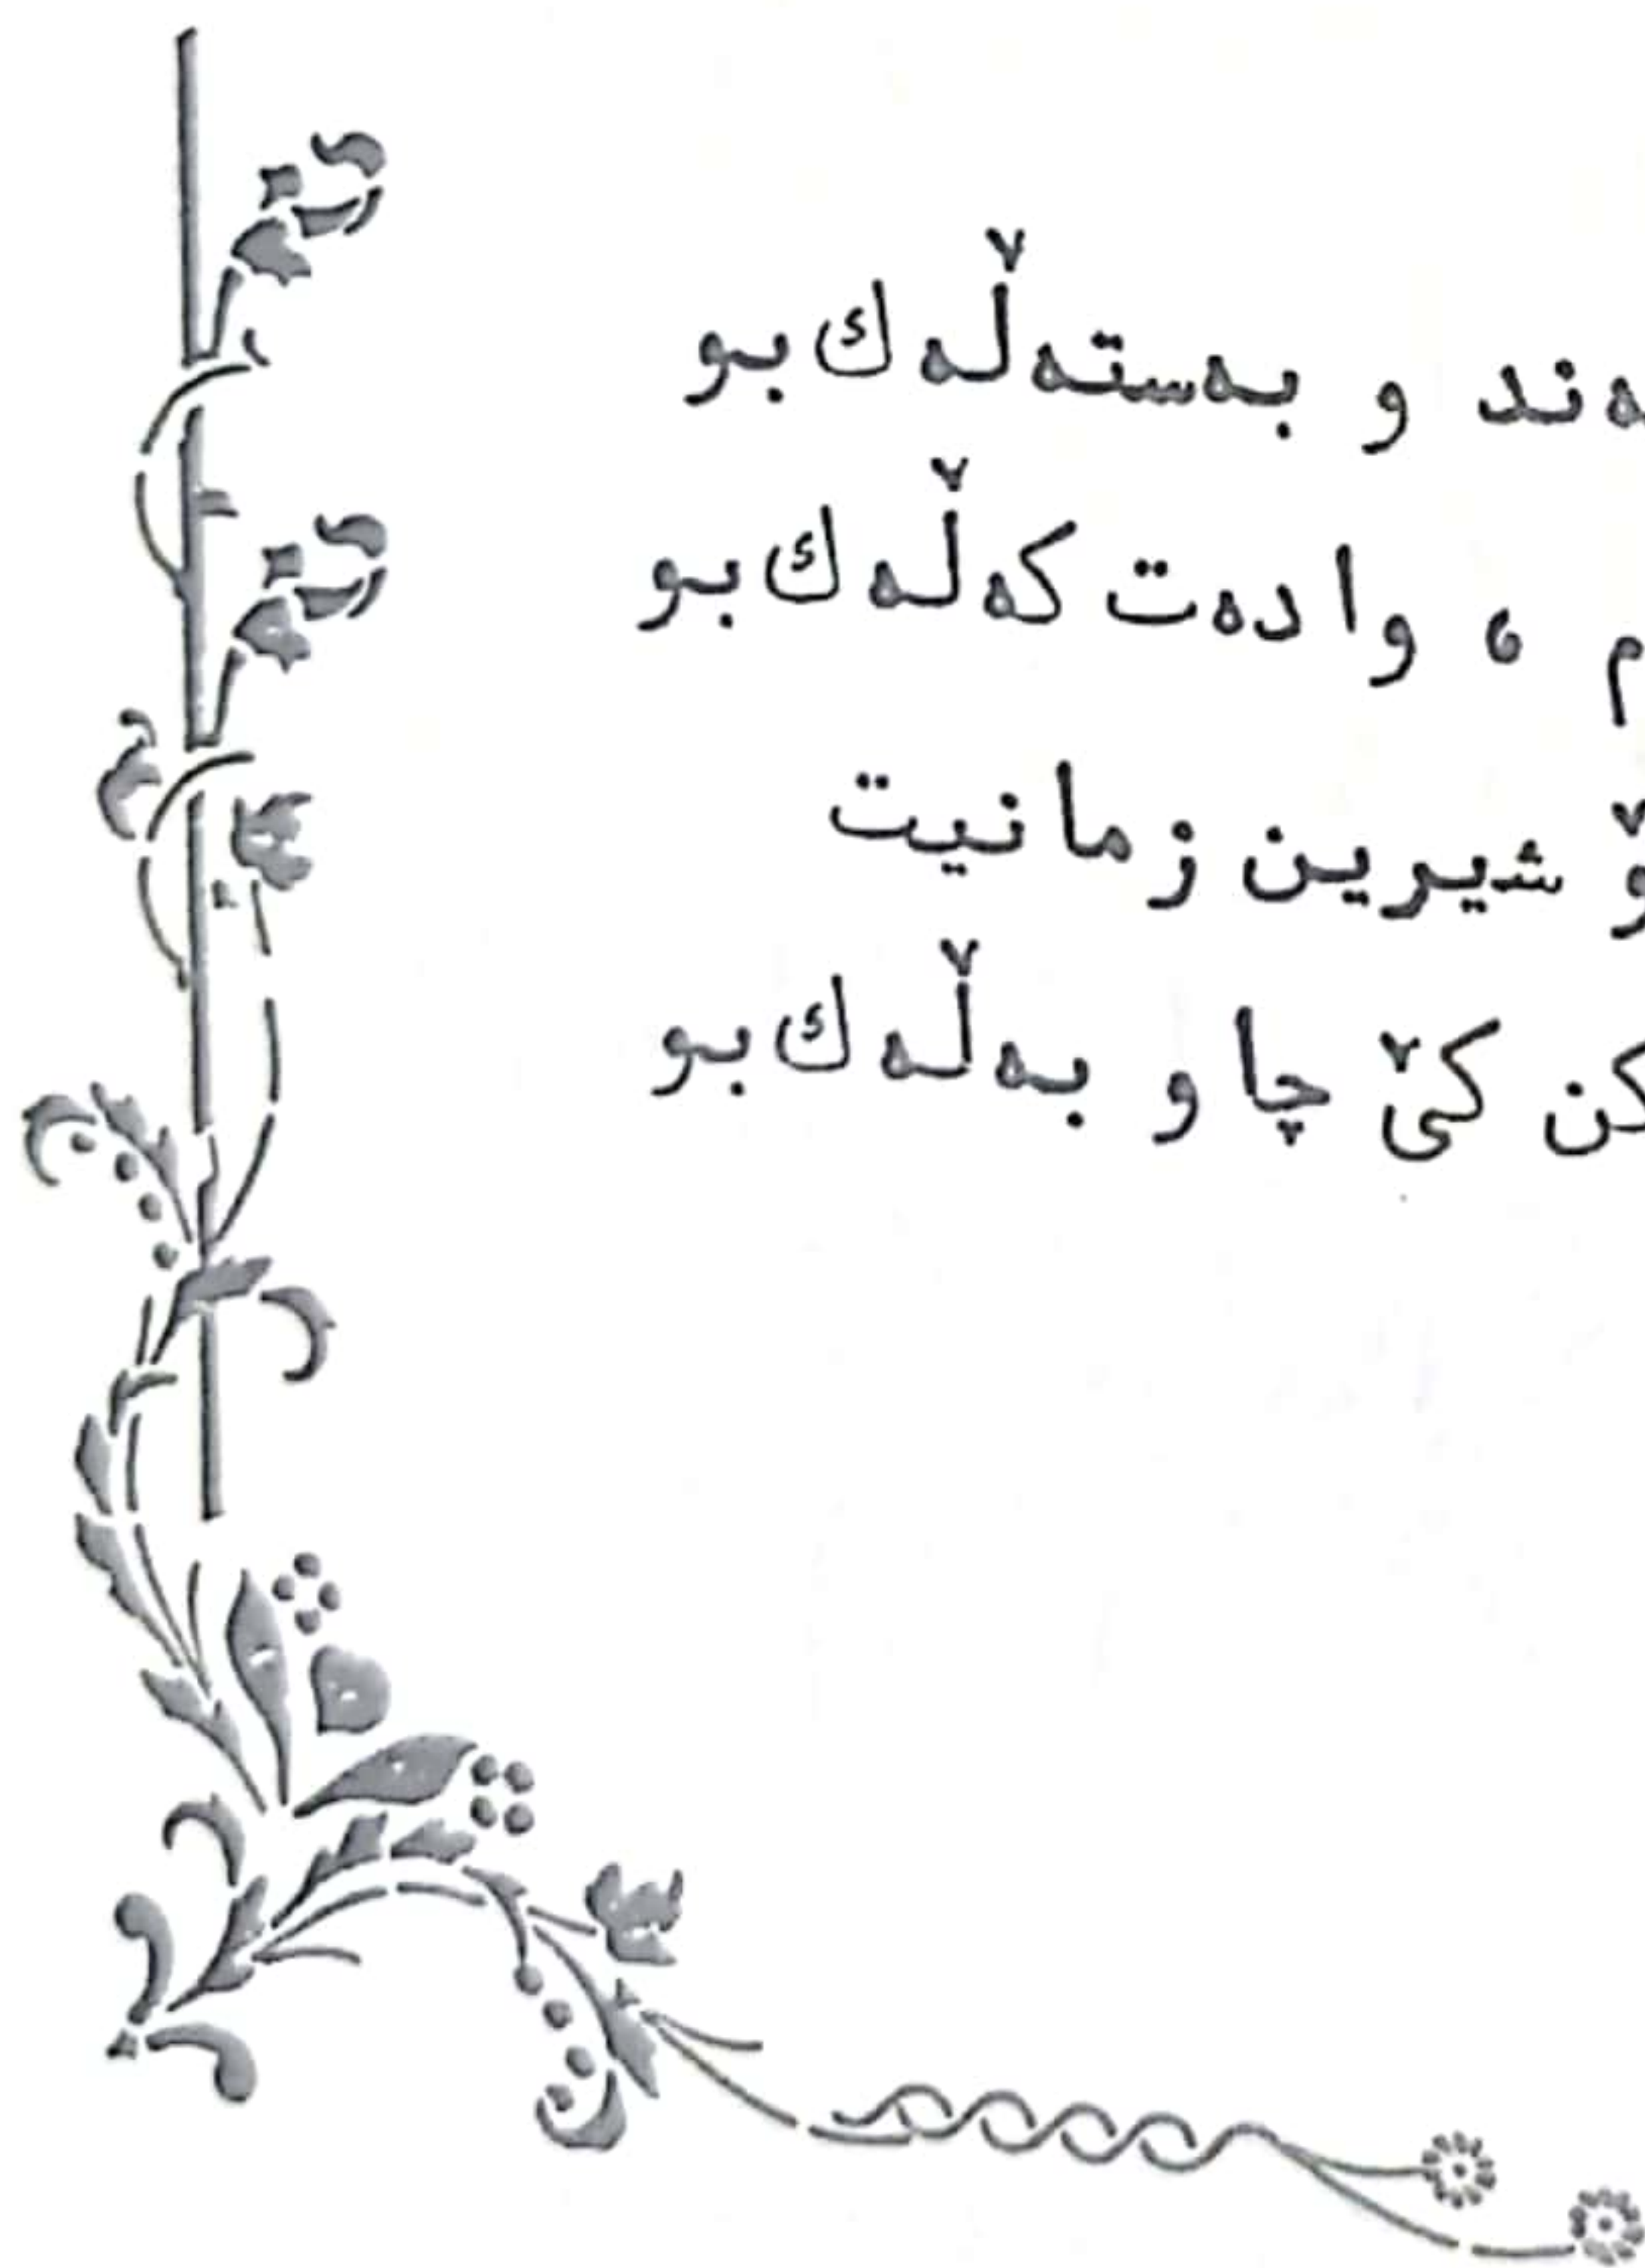 ەند و بەستەڵەك بو
م ، وادەت كەڵەك بو
ۆ شیرین زمانیت
كن كێ چاو بەڵەك بو